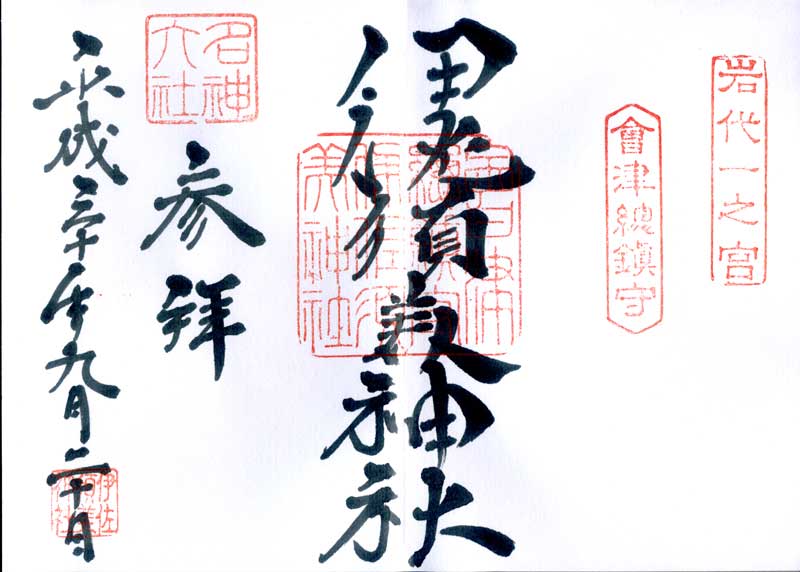 岩代一之宮
會津總鎮守
伊佐須美神社
名神
大社
参拜
平成三十年九月二十日
伊佐
須美
神社